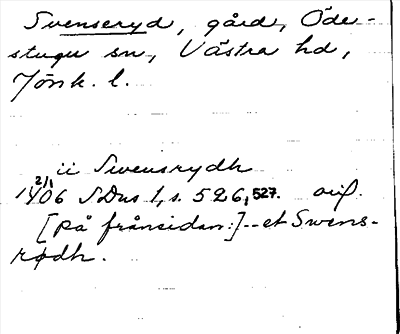 Svenseryd, gård, Öde-
stugu sn, Västra hd,
Jönk. l.
ii Swensrydh
2/1
1406 SDns 1, s. 526, 527. orig.
[På frånsidan:] -- et Swens-
rødh.